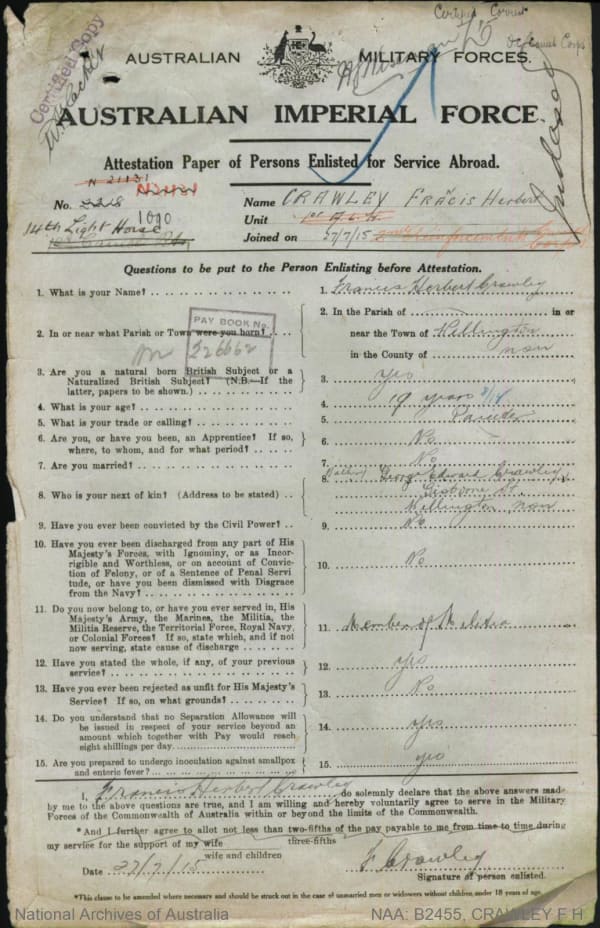 Certified Correct
Certified Copy
AUSTRALIAN MILITARY FORCES.
AUSTRALIAN IMPERIAL FORCE
Attestation Paper of Persons Enlisted for Service Abroad.
N 21131
No. 2218 Name CRAWLEY Francis Herbert
1090 Unit
14th Light Horse Joined on 27/7/15 2nd Reinforcements
Questions to be put to the Person Enlisting before Attestation.
1. What is your Name? 1. Francis Herbert Crawley
2. In or near what Parish or Town were you born? 2. In the Parish of in or
near the Town of Wellington
in the County of NSW
PAY BOOK No.
226662
3. Are you a natural born British Subject or a
Naturalized British Subject? (N.B.—If the
latter, papers to be shown.) 3. yes
4. What is your age? 4. 19 years
5. What is your trade or calling? 5. Painter
6. Are you, or have you been, an Apprentice? If so,
where, to whom, and for what period? 6. No
7. Are you married? 7. No
8. Who is your next of kin? (Address to be stated) 8. (Father) George Edward Crawley
Gisborne St.
Wellington NSW
9. Have you ever been convicted by the Civil Power? 9. No
10. Have you ever been discharged from any part of His
Majesty's Forces, with Ignominy, or as Incor-
rigible and Worthless, or on account of Convic-
tion of Felony, or of a Sentence of Penal Servi
tude, or have you been dismissed with Disgrace
from the Navy? 10. No
11. Do you now belong to, or have you ever served in, His
Majesty's Army, the Marines, the Militia, the
Militia Reserve, the Territorial Force, Royal Navy,
or Colonial Forces? If so, state which, and if not
now serving, state cause of discharge 11. Member of Militia
12. Have you stated the whole, if any, of your previous
service? 12. yes
13. Have you ever been rejected as unfit for His Majesty's
Service? If so, on what grounds? 13. No
14. Do you understand that no Separation Allowance will
be issued in respect of your service beyond an
amount which together with Pay would reach
eight shillings per day 14. yes
15. Are you prepared to undergo inoculation against smallpox
and enteric fever? 15. yes
I, Francis Herbert Crawley do solemnly declare that the above answers made
by me to the above questions are true, and I am willing and hereby voluntarily agree to serve in the Military
Forces of the Commonwealth of Australia within or beyond the limits of the Commonwealth.
*And I further agree to allot not less than two-fifths of the pay payable to me from time to time during
three-fifths
my service for the support of my wife
wife and children
Date 27/7/15 F Crawley
Signature of person enlisted.
*This clause to be amended where necessary and should be struck out in the case of unmarried men or widowers without children under 18 years of age.
National Archives of Australia NAA: B2455, CRAWLEY F H